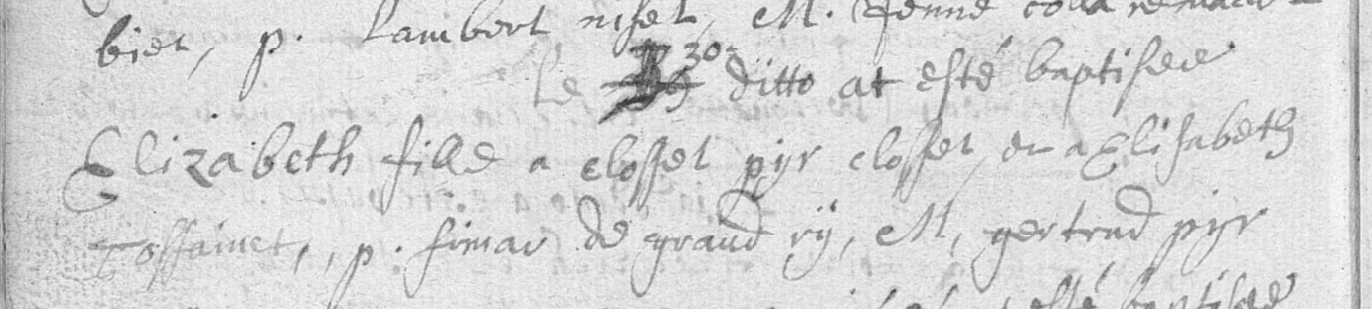 biet, p. Lambert niset, M. Jenne
Le 30 ditto at esté baptisee
Elizabeth fille a closset pyr closset et a Elisabeth
Tossainct, p. simar de grand ry, M, gertrud pyr
esté baptisee